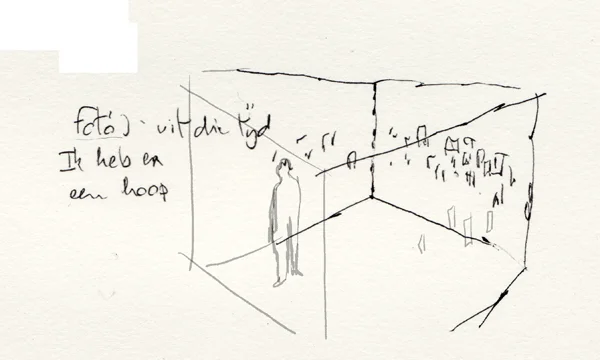 foto's uit die tijd
Ik heb er
een hoop